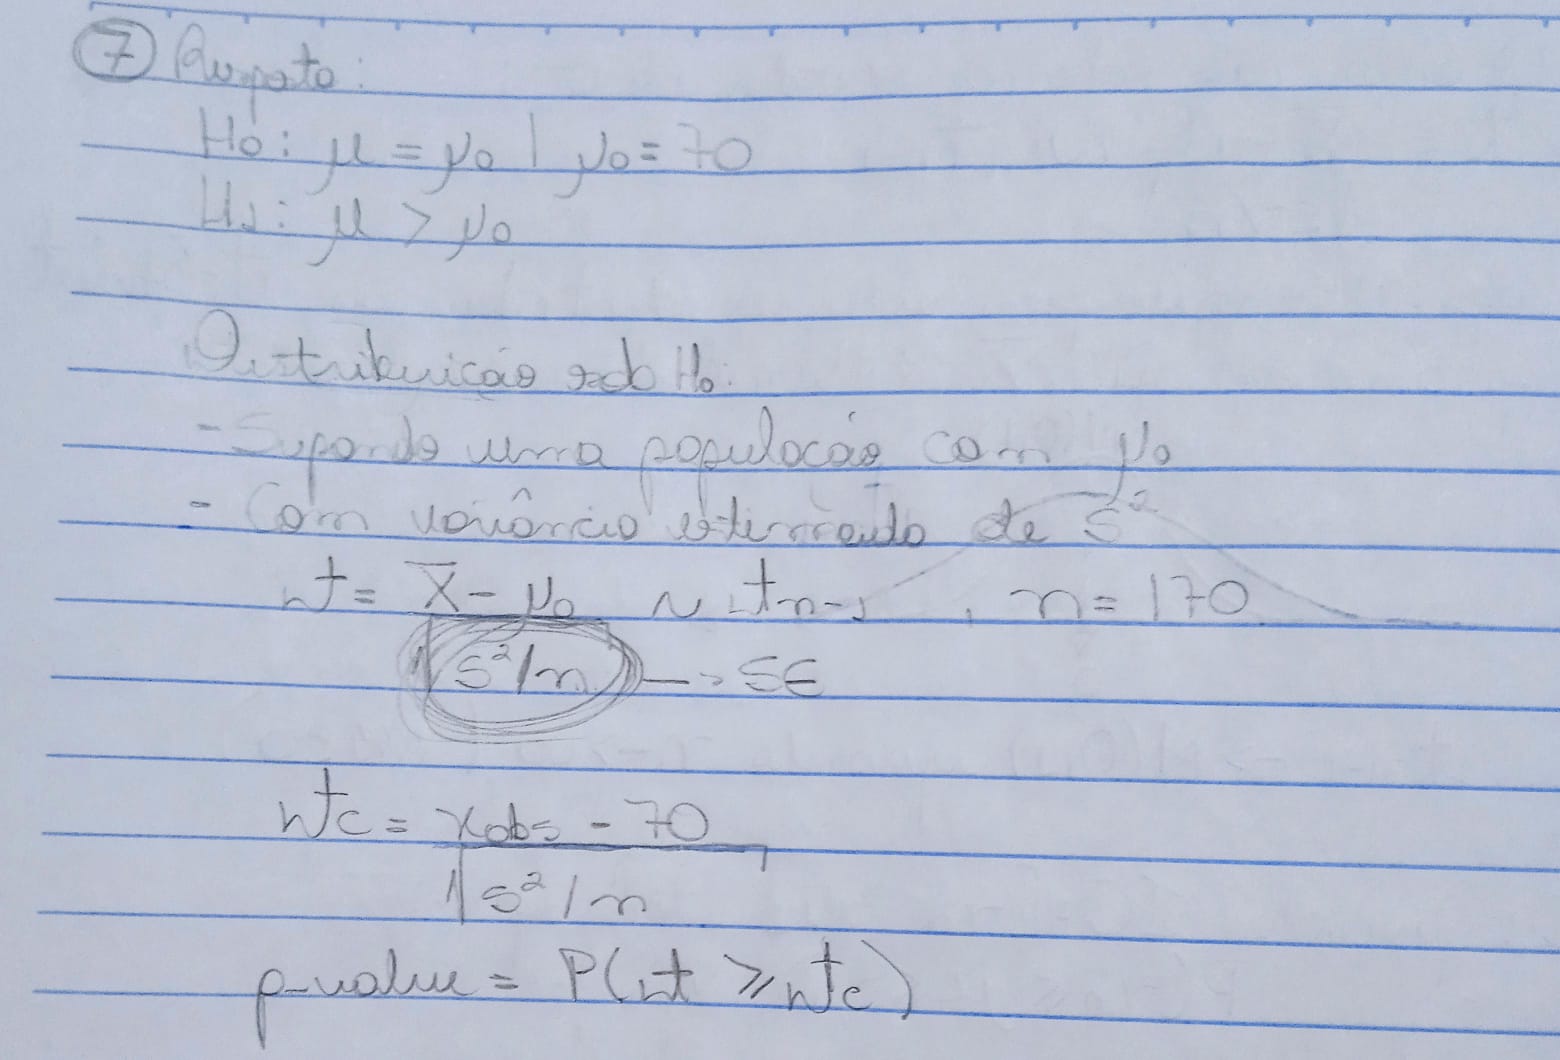 7 Resposta:
H0: μ = μ0 | μ0 = 70
H1: μ > μ0
Distribuição sob H0:
- Supondo uma população com μ0
- Com variância estimada de S²
t = X̄ - μ0 ~ tn-1, n = 170
√S²/n -> SE
tc = xobs - 70
√s²/n
p-value = P(t ≥ tc)